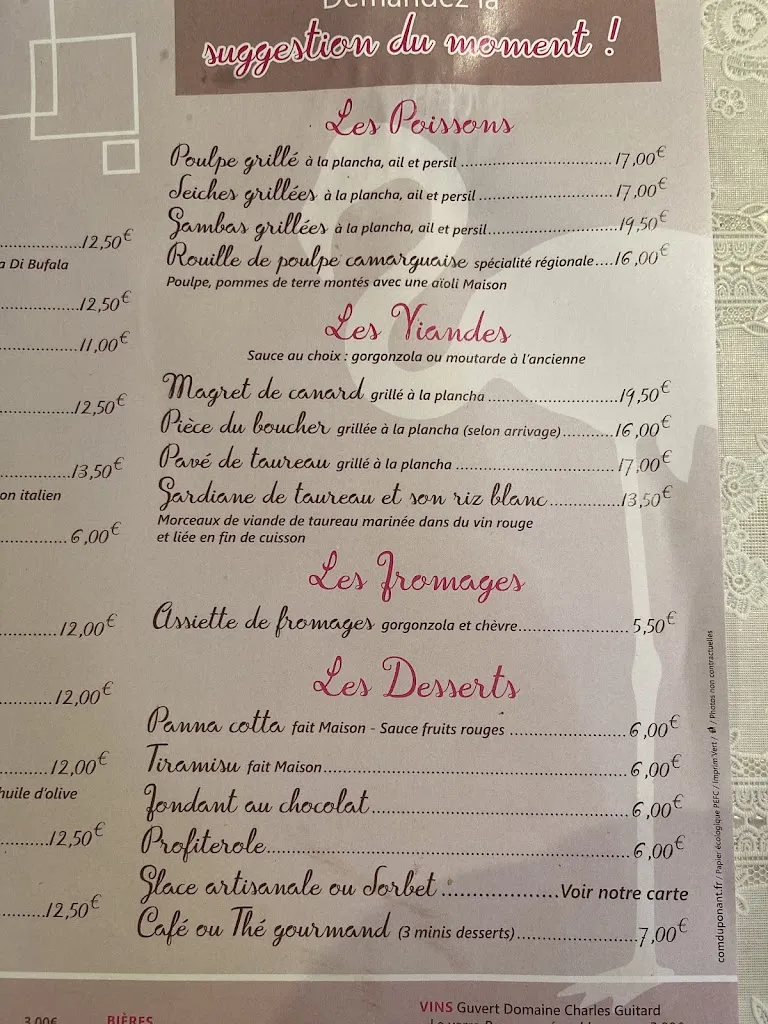 Demandez la
suggestion du moment !
Les Poissons
Poulpe grillé à la plancha, ail et persil ........ 17,00€
Seiches grillées à la plancha, ail et persil ........ 17,00€
Gambas grillées à la plancha, ail et persil ........ 19,50€
Rouille de poulpe camarguaise spécialité régionale .... 16,00€
Poulpe, pommes de terre montés avec une aïoli Maison
Les Viandes
Sauce au choix : gorgonzola ou moutarde à l'ancienne
Magret de canard grillé à la plancha ........ 19,50€
Pièce du boucher grillée à la plancha (selon arrivage) ........ 16,00€
Pavé de taureau grillé à la plancha ........ 17,00€
Gardiane de taureau et son riz blanc ........ 13,50€
Morceaux de viande de taureau marinée dans du vin rouge
et liée en fin de cuisson
Les Fromages
Assiette de fromages gorgonzola et chèvre ........ 5,50€
Les Desserts
Panna cotta fait Maison - Sauce fruits rouges ........ 6,00€
Tiramisu fait Maison ........ 6,00€
Fondant au chocolat ........ 6,00€
Profiterole ........ 6,00€
Glace artisanale ou Sorbet ........ Voir notre carte
Café ou Thé gourmand (3 minis desserts) ........ 7,00€
12,50€
a Di Bufala
12,50€
11,00€
12,50€
13,50€
on italien
6,00€
12,00€
12,00€
12,00€
huile d'olive
12,50€
12,50€
comduponant.fr / Papier écologique PEFC / Imprim'Vert / / Photos non contractuelles
3,00€
BIÈRES
VINS Guvert Domaine Charles Guitard